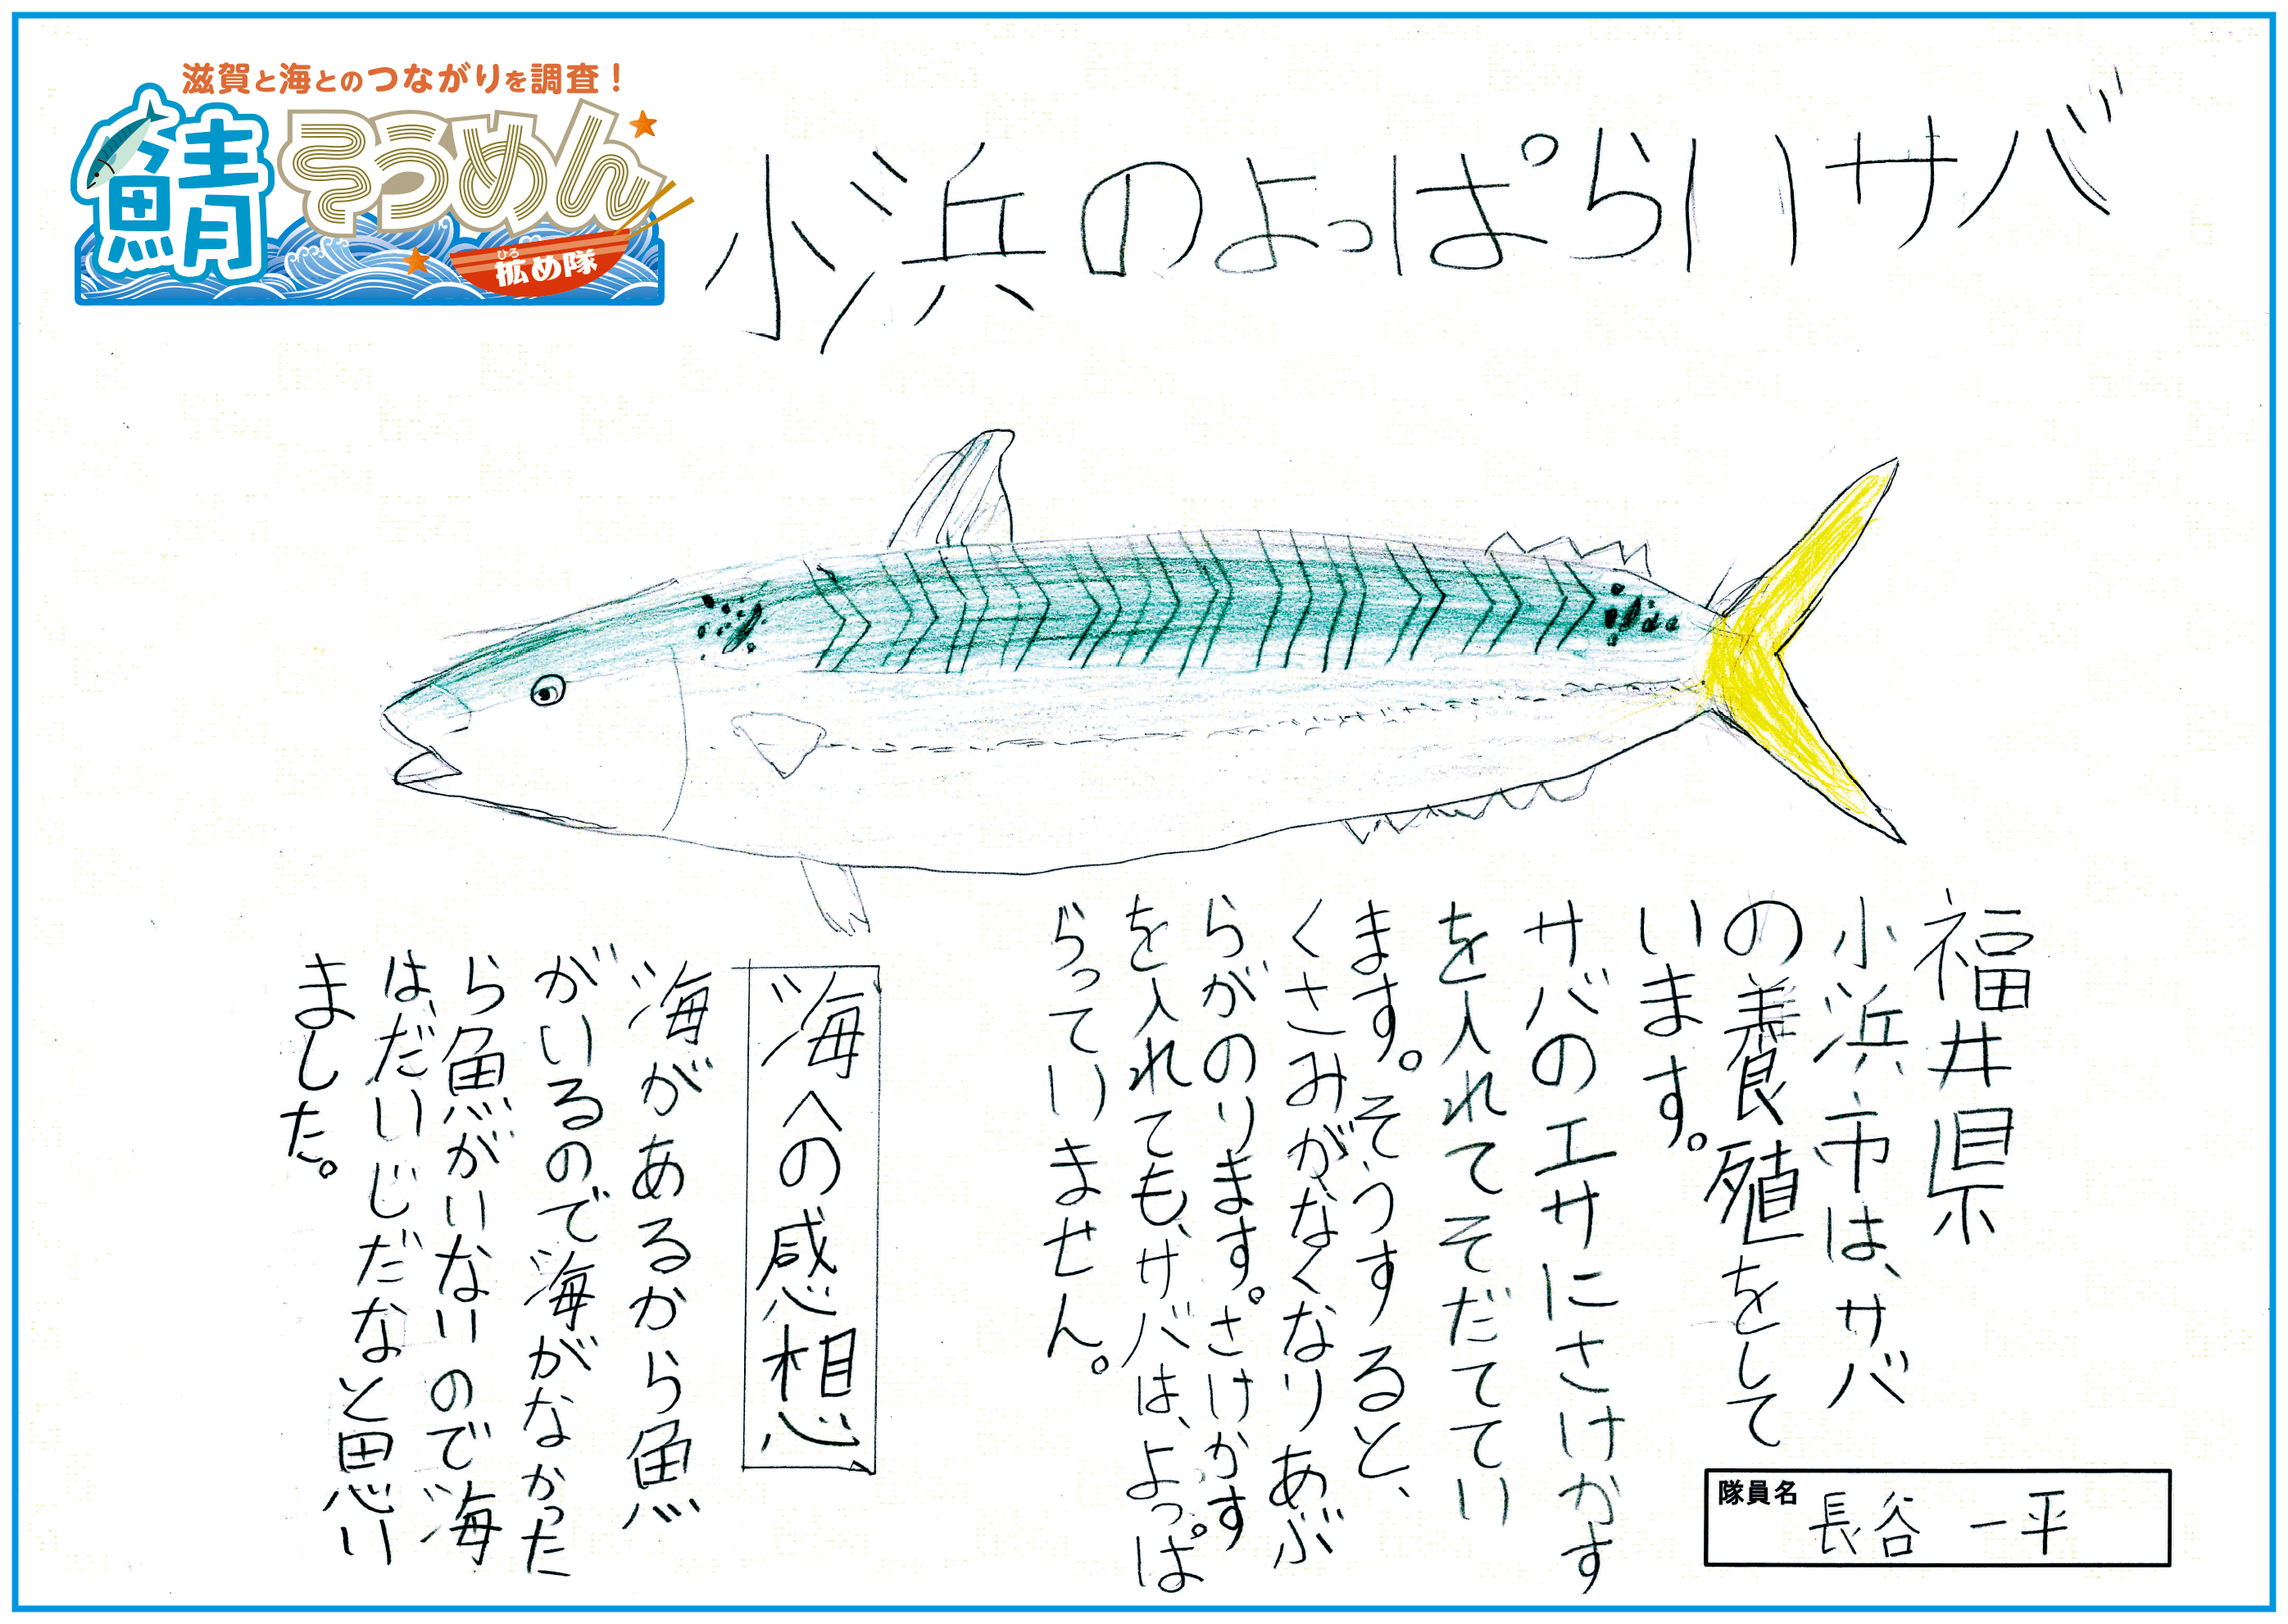 滋賀と海とのつながりを調査！
鯖そうめん
ひろ
拡め隊
小浜のよっぱらいサバ
福井県
小浜市は、サバ
の養殖をして
います。
サバのエサにさけかす
を入れてそだててい
ます。そうすると、
くさみがなくなりあぶ
らがのります。さけかす
を入れても、サバは、よっぱ
らっていません。
海への感想
海があるから魚
がいるので海がなかった
ら魚がいないので海
は、だいじだなと思い
ました。
隊員名
長谷 一平